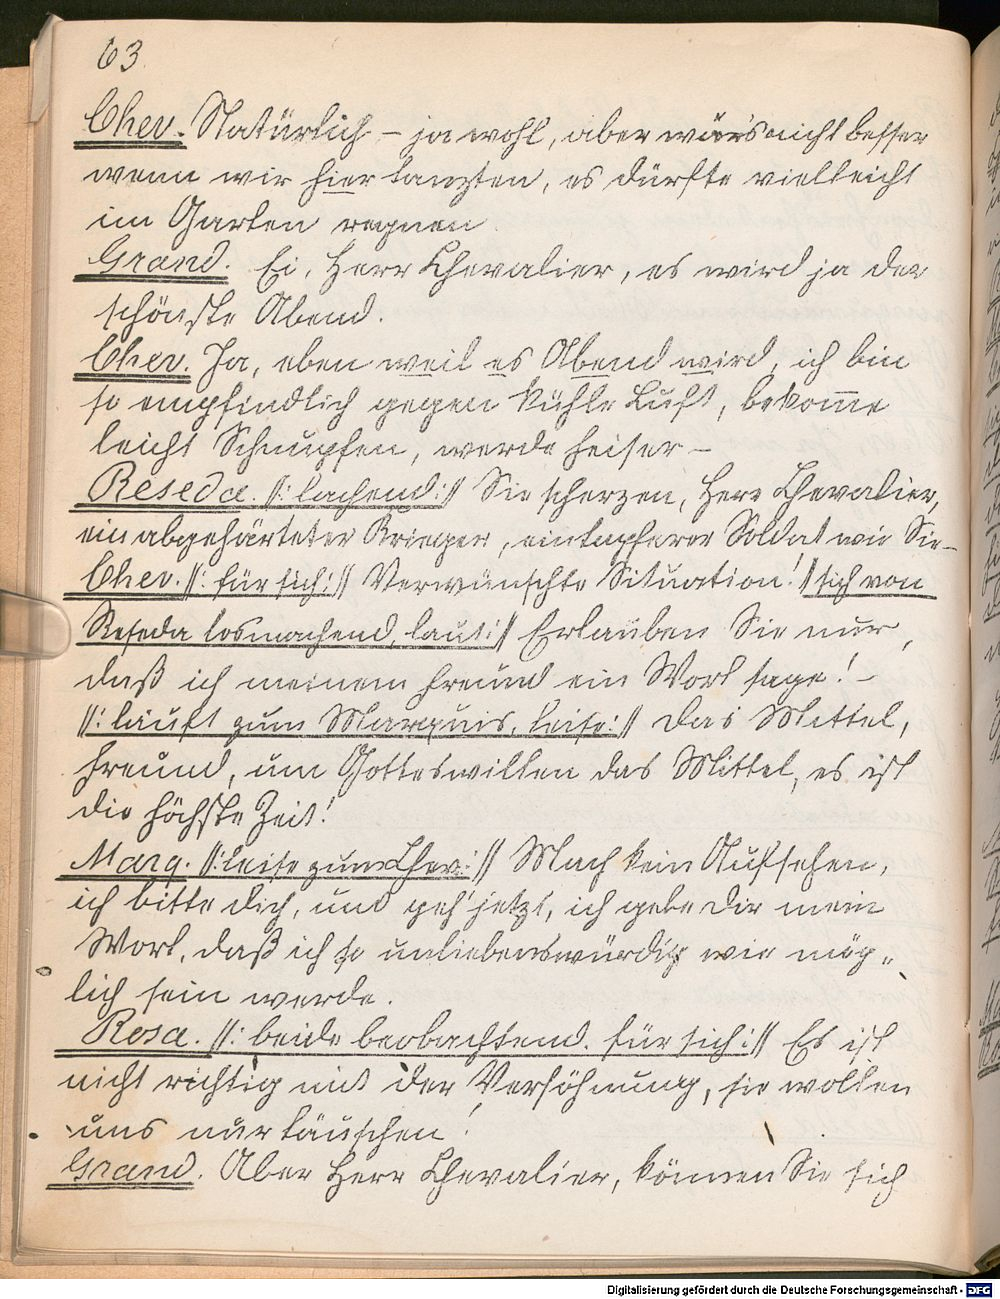 63.
Chev. Natürlich – ja wohl, aber wär's nicht besser
wenn wir hier tanzten, es dürfte vielleicht
im Garten regnen
Grand. Ei, Herr Chevalier, es wird ja der
schönste Abend.
Chev. Ja, eben weil es Abend wird, ich bin
so empfindlich gegen kühle Luft, bekom̅e
leicht Schnupfen, werde heiser –
Reseda. //: lachend :// Sie scherzen, Herr Chevalier,
ein abgehärteter Krieger, ein tapferer Soldat wie Sie –
Chev. //: für sich :// Verwünschte Situation! // sich von
Reseda losmachend, laut :// Erlauben Sie nur,
daß ich meinem Freund ein Wort sage! –
//: läuft zum Marquis, leise :// Das Mittel,
Freund, um Gotteswillen das Mittel, es ist
die höchste Zeit!
Marq. //: leise zum Chev :// Mach kein Aufsehen,
ich bitte dich, und geh' jetzt, ich gebe dir mein
Wort, daß ich so unliebenswürdig wie mög„
lich sein werde.
Rosa. //: beide beobachtend. für sich :// Es ist
nicht richtig mit der Versöhnung, sie wollen
uns nur täuschen!
Grand. Aber Herr Chevalier, können Sie sich
Digitalisierung gefördert durch die Deutsche Forschungsgemeinschaft - DFG